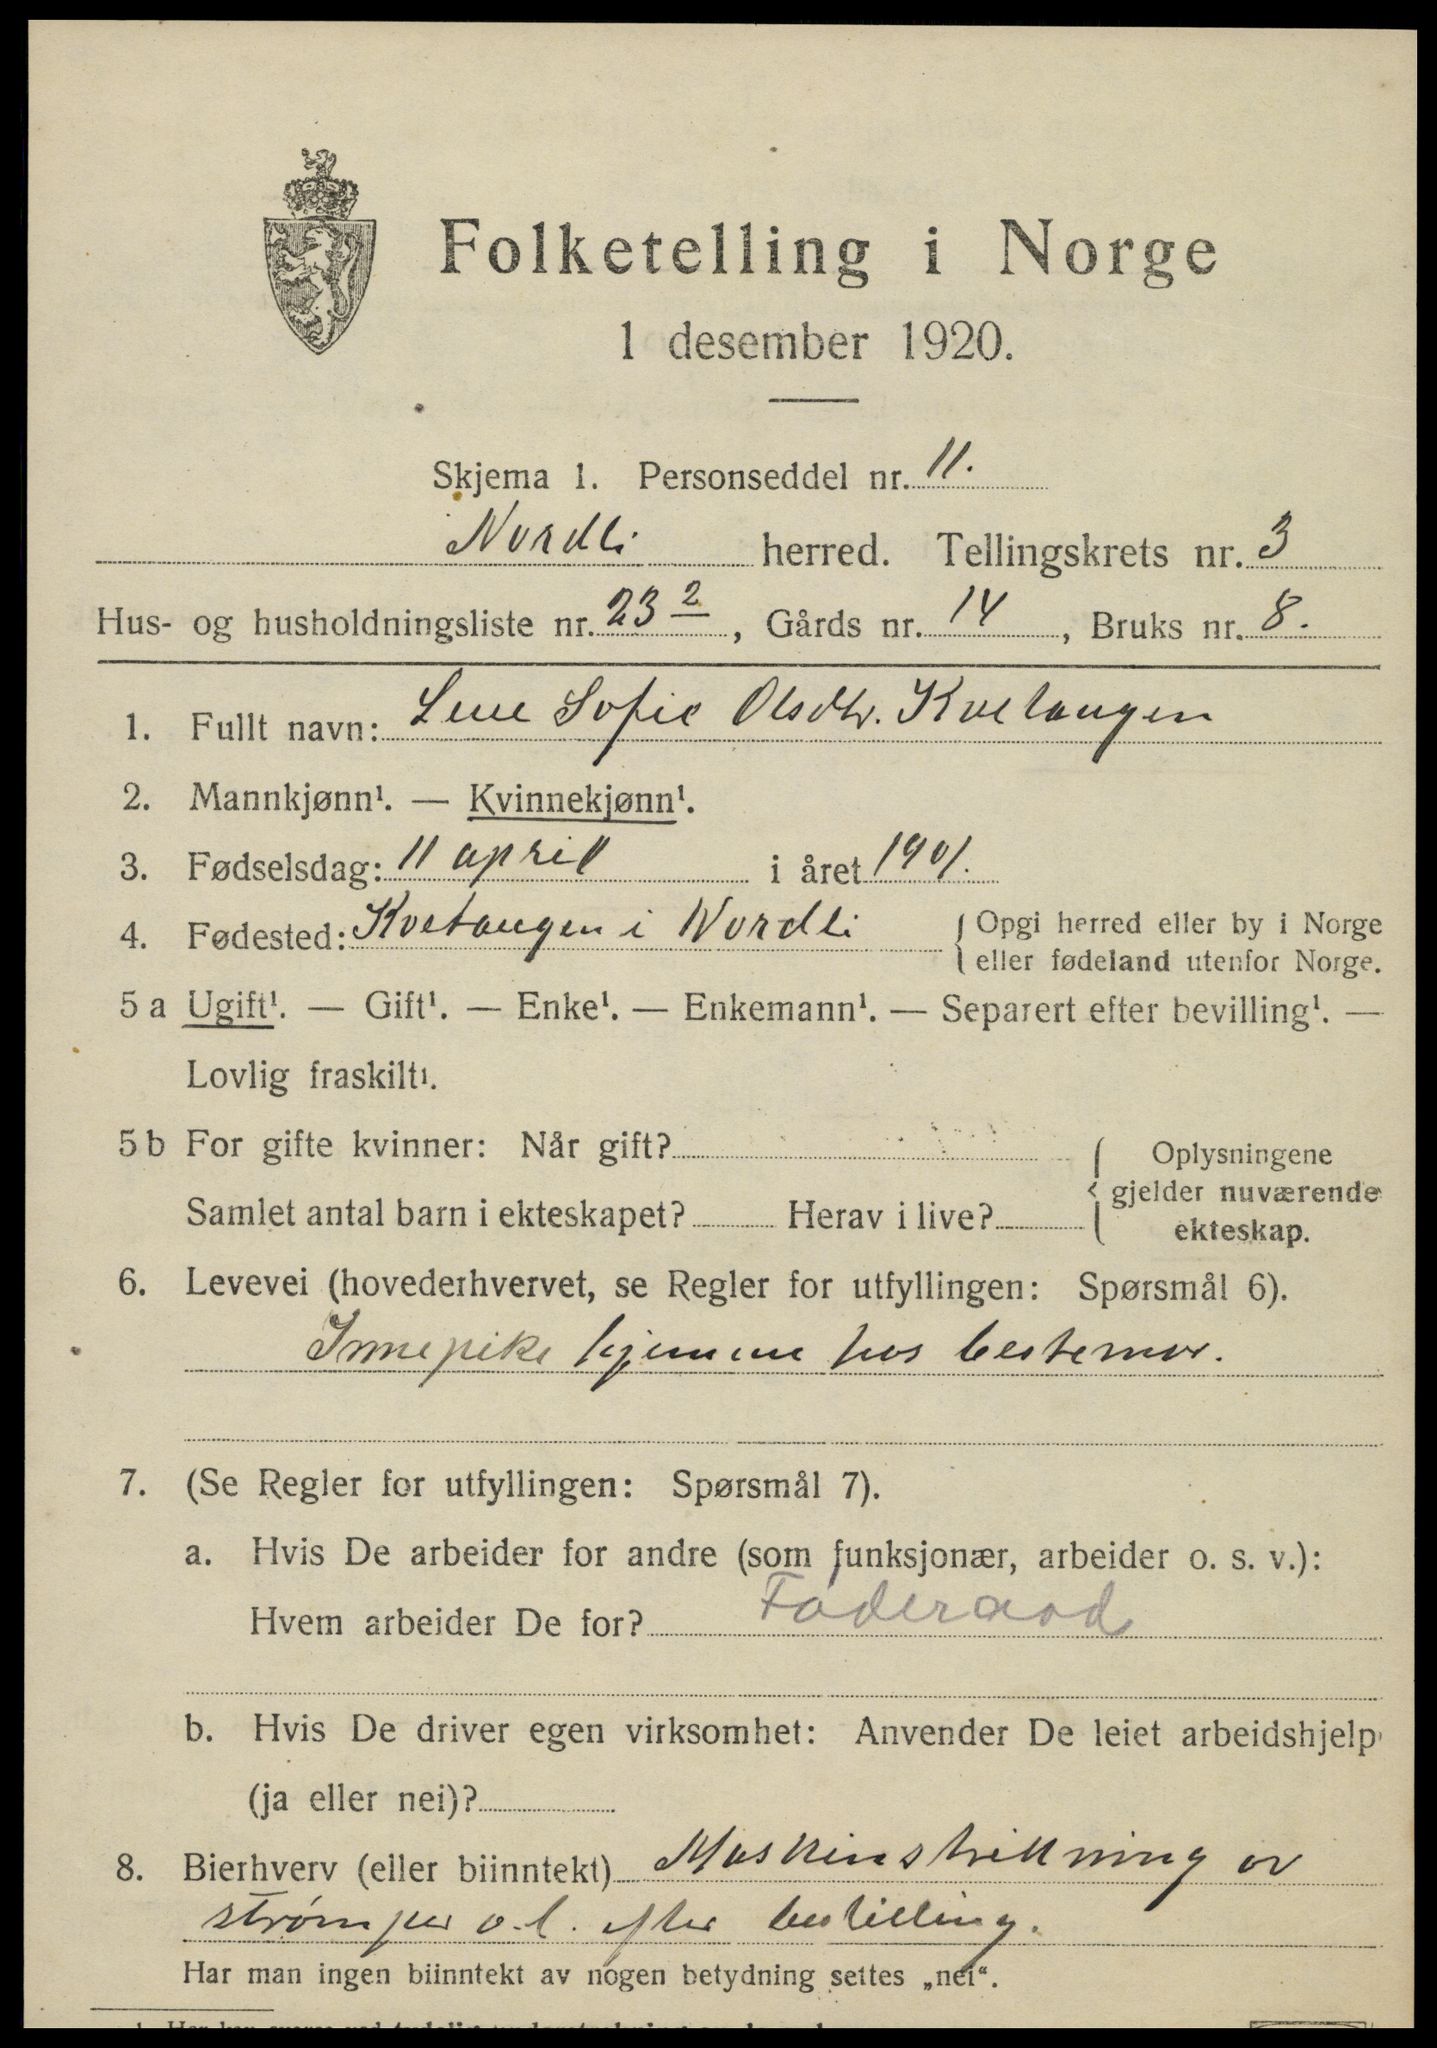 Folketelling i Norge
1 desember 1920.
Skjema 1. Personseddel nr. 11.
Nordli herred. Tellingskrets nr. 3
Hus- og husholdningsliste nr. 23 2, Gårds nr. 14, Bruks nr. 8.
1. Fullt navn: Lene Sofie Olsdtr. Kvetangen
2. Mannkjønn¹. — Kvinnekjønn¹.
3. Fødselsdag: 11 april i året 1901.
4. Fødested: Kvetangen i Nordli {Opgi herred eller by i Norge
eller fødeland utenfor Norge.
5 a Ugift¹. — Gift¹. — Enke¹. — Enkemann¹. — Separert efter bevilling¹. —
Lovlig fraskilt¹.
5 b For gifte kvinner: Når gift?
Samlet antal barn i ekteskapet? Herav i live?
{Oplysningene
gjelder nuværende
ekteskap.
6. Levevei (hovederhvervet, se Regler for utfyllingen: Spørsmål 6).
Innepike hjemme hos bestemor.
7. (Se Regler for utfyllingen: Spørsmål 7).
a. Hvis De arbeider for andre (som funksjonær, arbeider o. s. v.):
Hvem arbeider De for? Føderaad
b. Hvis De driver egen virksomhet: Anvender De leiet arbeidshjelp
(ja eller nei)?
8. Bierhverv (eller biinntekt) Maskinstrikkning av
strømper o.l. efter bestilling.
Har man ingen biinntekt av nogen betydning settes „nei“.